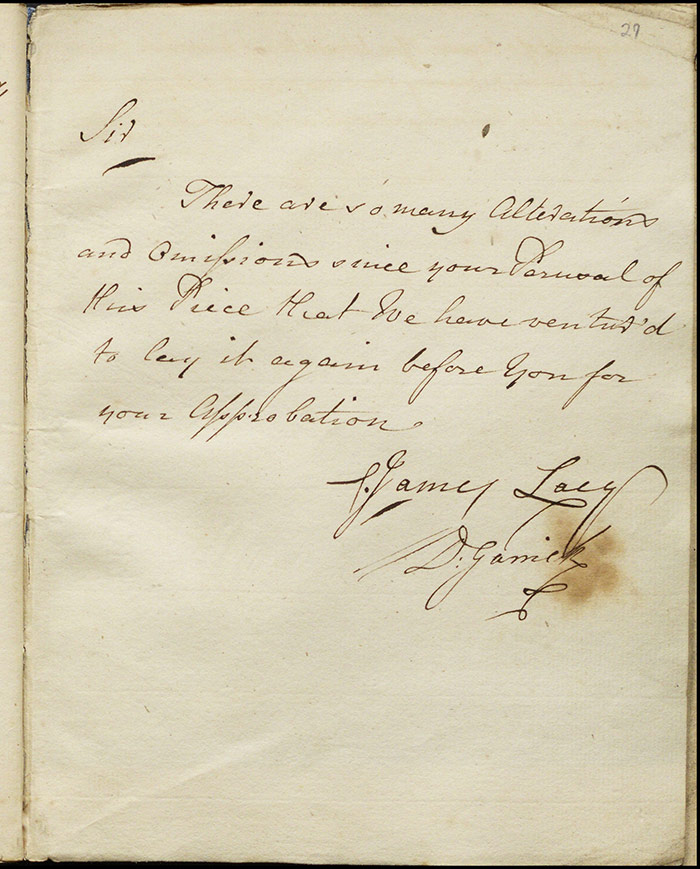 29
Sir
There are so many Alterations
and Omissions since your Perusal of
this Piece that We have ventur'd
to lay it again before You for
your Approbation
James Lacy
D. Garrick